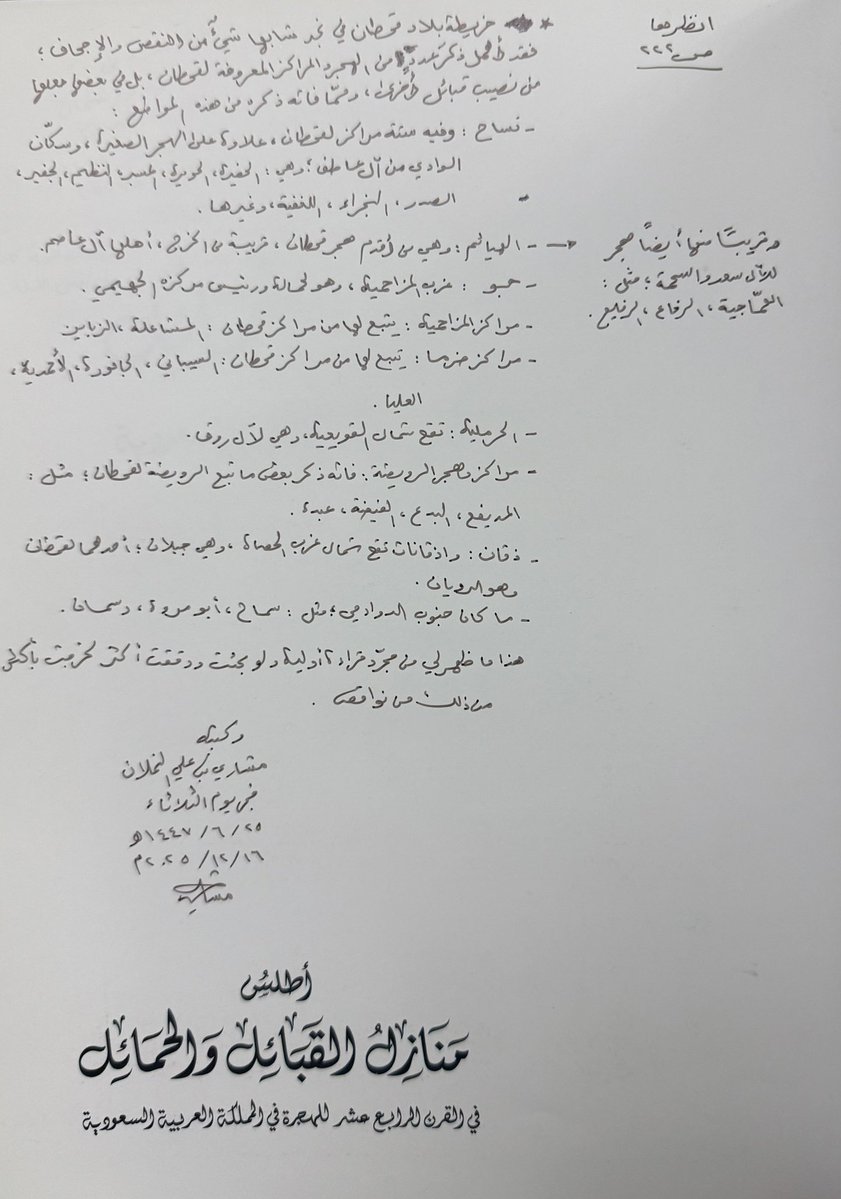 انظرها
ص٢٢٢
* خريطة بلاد قحطان في نجد شابها شيءٌ من النقص والإجحاف؛
فقد أهمل ذكر عددٍ من الهجر والمراكز المعروفة لقحطان، بل في بعضها جعلها
من نصيب قبائل أخرى، وممّا فاته ذكره من هذه المواضع:
- نساح: وفيه ستة مراكز لقحطان، علاوة على الهجر الصغيرة، وسكّان
الوادي من آل عاطف؛ وهي: الحفيرة، الحويرة، المسبر، النظيم، الجفير،
الصدر، النجراء، اللغفية، وغيرها.
- الهياثم: وهي من أقدم هجر قحطان، قريبة من الخرج، أهلها آل عاصم.
وقريبًا منها أيضاً هجر
للآل سعد والسحمة؛ مثل:
العمّاجية، الرفاع، الرفيع.
- حبو: غرب المزاحمية، وهو لحمالة ورئيس مركزه الجهيمي.
- مراكز المزاحمية: يتبع لها من مراكز قحطان: المشاعلة، الزباين
- مراكز ضرما: يتبع لها من مراكز قحطان: السيباني، الجافورة، الأحمدية،
العليا.
- الحرملية: تقع شمال القويعية، وهي لآل روق.
- مراكز وهجر الرويضة: فاته ذكر بعض ما تبع الرويضة لقحطان؛ مثل:
المديفع، البدع، الفيضة، عبدة.
- ذقان: واذقانات تقع شمال غرب الحصاة، وهي جبلان؛ أحدهما لقحطان
وهو الرويان.
- ما كان جنوب الدوادمي؛ مثل: سماح، أبو مروة، وسمان.
هذا ما ظهر لي من مجرّد قراءة أولية ولو بحثت ودققت أكثر لخرجت بأكثر
من ذلك من نواقص.
وكتبه
مشاري بن علي النملان
في يوم الثلاثاء
٢٥/٦/١٤٤٧هـ
١٦/١٢/٢٠٢٥م
أطلس
مَنَازِلُ القَبَائِل وَالحَمَائِل
في القرن الرابع عشر للهجرة في المملكة العربية السعودية